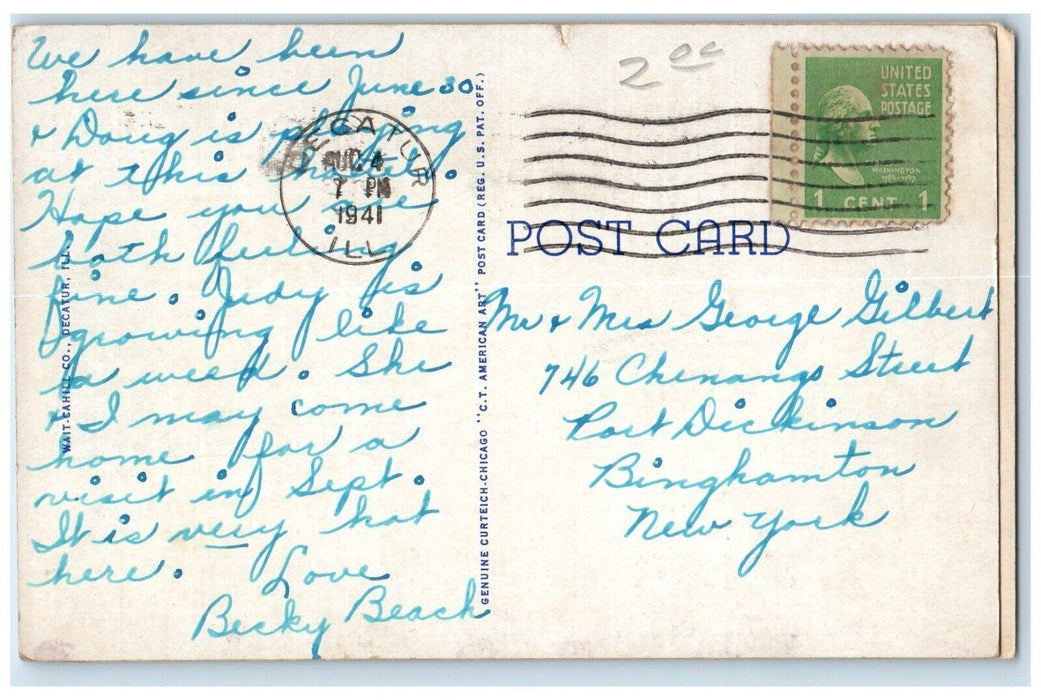 We have been
here since June 30
& Doug is playing
at this hotel.
Hope you are
both feeling
fine. Judy is
growing like
a weed. She
& I may come
home for a
visit in Sept.
It is very hot
here. Love
Becky Beach
WAIT-CAHILL CO., DECATUR, ILL.
DECATUR
AUG 4
7 PM
1941
ILL
GENUINE CURTEICH-CHICAGO "C.T. AMERICAN ART" POST CARD (REG. U.S. PAT. OFF.)
2oc
UNITED
STATES
POSTAGE
WASHINGTON
1789-1797
1 CENT 1
POST CARD
Mr & Mrs George Gilbert
746 Chenango Street
Port Dickinson
Binghamton
New York